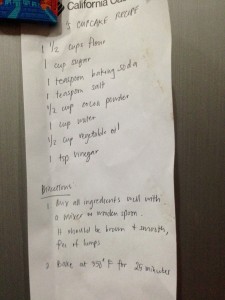 California
CUPCAKE RECIPE
1 1/2 cups flour
1 cup sugar
1 teaspoon baking soda
1 teaspoon salt
1/2 cup cocoa powder
1 cup water
1/2 cup vegetable oil
1 tsp vinegar
Directions
Mix all ingredients well with
a mixer or wooden spoon.
It should be brown & smooth,
free of lumps
Bake at 350° F for 25 minutes